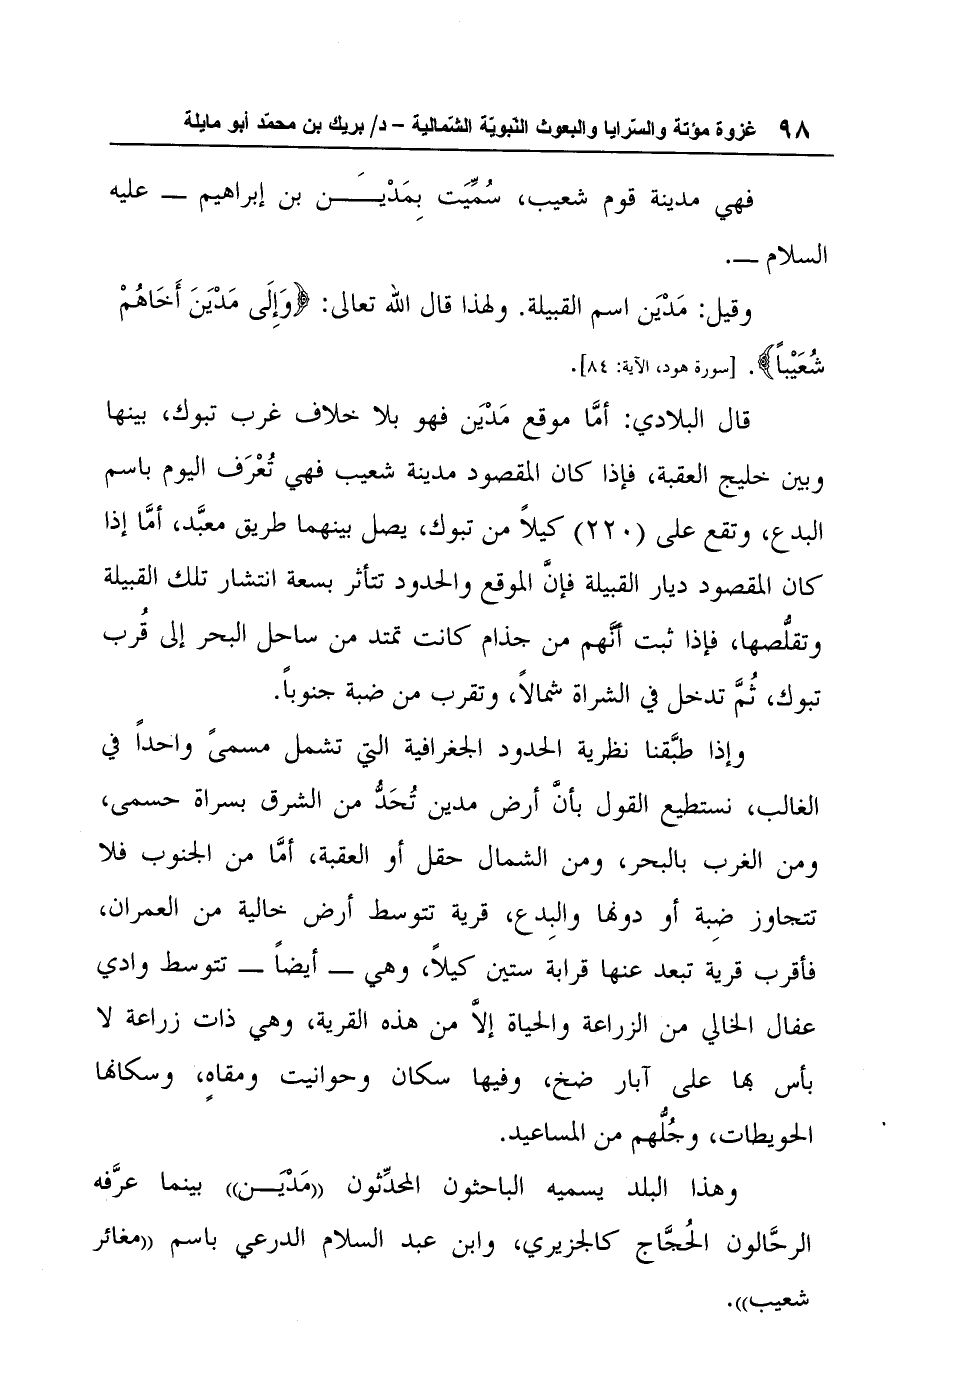 ٩٨ غزوة مؤتة والسّرايا والبعوث النّبويّة الشّمالية – د/ بريك بن محمّد أبو مايلة
فهي مدينة قوم شعيب، سُمِّيَت بِمَدْيَـــن بن إبراهيم ــ عليه
السلام ــ.
وقيل: مَدْيَن اسم القبيلة. ولهذا قال الله تعالى: ﴿وَإِلَى مَدْيَنَ أَخَاهُمْ
شُعَيْباً﴾. [سورة هود، الآية: ٨٤].
قال البلادي: أمَّا موقع مَدْيَن فهو بلا خلاف غرب تبوك، بينها
وبين خليج العقبة، فإذا كان المقصود مدينة شعيب فهي تُعْرَف اليوم باسم
البدع، وتقع على (٢٢٠) كيلاً من تبوك، يصل بينهما طريق معبَّد، أمَّا إذا
كان المقصود ديار القبيلة فإنَّ الموقع والحدود تتأثر بسعة انتشار تلك القبيلة
وتقلُّصها، فإذا ثبت أنَّهم من جذام كانت تمتد من ساحل البحر إلى قُرب
تبوك، ثُمَّ تدخل في الشراة شمالاً، وتقرب من ضبة جنوباً.
وإذا طبَّقنا نظرية الحدود الجغرافية التي تشمل مسمىً واحداً في
الغالب، نستطيع القول بأنَّ أرض مدين تُحَدُّ من الشرق بسراة حسمى،
ومن الغرب بالبحر، ومن الشمال حقل أو العقبة، أمَّا من الجنوب فلا
تتجاوز ضِبة أو دونها والبِدع، قرية تتوسط أرض خالية من العمران،
فأقرب قرية تبعد عنها قرابة ستين كيلاً، وهي ــ أيضاً ــ تتوسط وادي
عفال الخالي من الزراعة والحياة إلاَّ من هذه القرية، وهي ذات زراعة لا
بأس بها على آبار ضخ، وفيها سكان وحوانيت ومقاهٍ، وسكانها
الحويطات، وجُلُّهم من المساعيد.
وهذا البلد يسميه الباحثون المحدِّثون ((مَدْيَــن)) بينما عرَّفه
الرحَّالون الحُجَّاج كالجزيري، وابن عبد السلام الدرعي باسم ((مغائر
شعيب)).